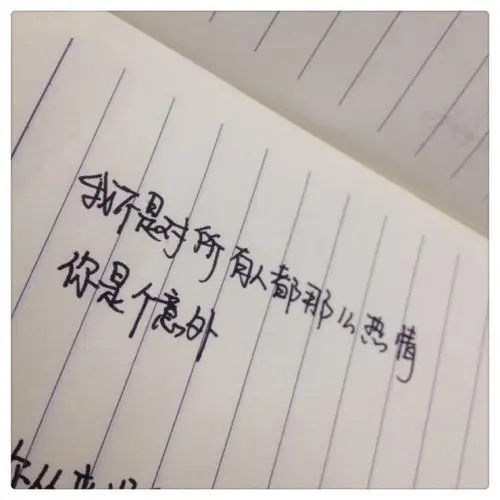 我不是对所有人都那么热情
你是个意外